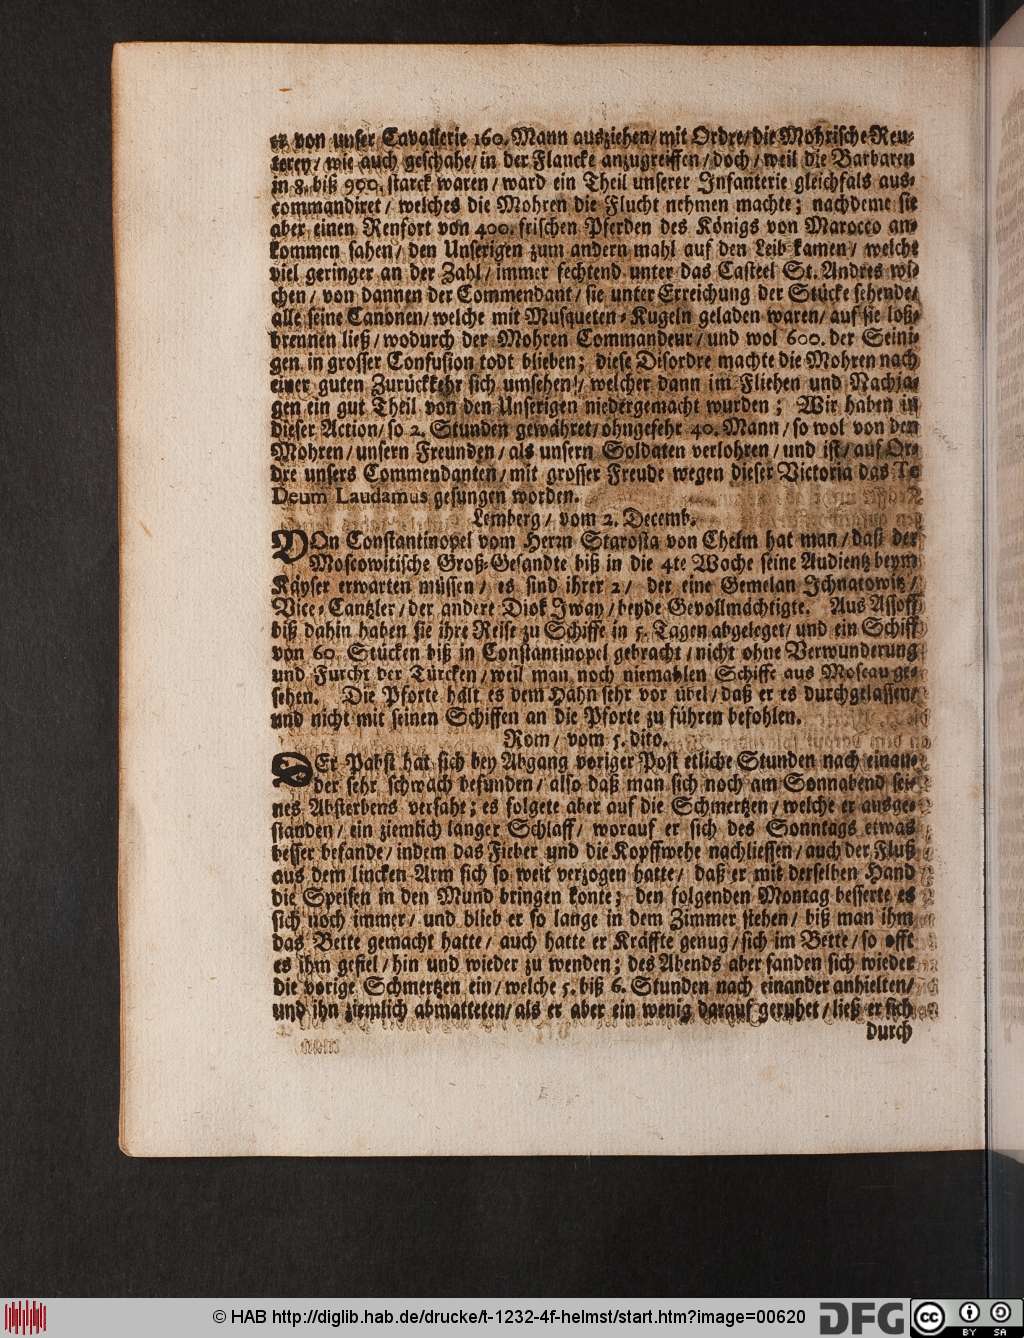 er von unser Cavallerie 160. Mann ausziehen/ mit Ordre/ die Mohrische Reu-
terey/ wie auch geschahe/ in der Flancke anzugreiffen/ doch/ weil die Barbaren
in 8. biß 900. starck waren/ ward ein Theil unserer Infanterie gleichfals aus-
commandiret/ welches die Mohren die Flucht nehmen machte; nachdeme sie
aber einen Renfort von 400. frischen Pferden des Königs von Marocco an-
kommen sahen/ den Unserigen zum andern mahl auf den Leib kamen/ welche
viel geringer an der Zahl/ immer fechtend unter das Casteel St. Andres wi-
chen/ von dannen der Commendant/ sie unter Erreichung der Stücke sehende/
alle seine Canonen/ welche mit Musqueten-Kugeln geladen waren/ auf sie loß-
brennen ließ/ wodurch der Mohren Commandeur/ und wol 600. der Seini-
gen in grosser Confusion todt blieben; diese Disordre machte die Mohren nach
einer guten Zurückkehr sich umsehen!/ welcher dann im Fliehen und Nachja-
gen ein gut Theil von den Unserigen niedergemacht wurden; Wir haben in
dieser Action/ so 2. Stunden gewähret/ ohngefehr 40. Mann/ so wol von den
Mohren/ unsern Freunden/ als unsern Soldaten verlohren/ und ist/ auf Or-
dre unsers Commendanten/ mit grosser Freude wegen dieser Victoria das Te
Deum Laudamus gesungen worden.
Lemberg/ vom 2. Decemb.
VOn Constantinopel vom Herrn Starosta von Chelm hat man/ daß der
Moscowitische Groß-Gesandte biß in die 4te Woche seine Audientz beym
Käyser erwarten müssen/ es sind ihrer 2/ der eine Gemelan Ichnatowitz/
Vice-Cantzler/ der andere Diok Iway/ beyde Gevollmächtigte. Aus Assoff
biß dahin haben sie ihre Reise zu Schiffe in 5. Tagen abgeleget/ und ein Schiff
von 60. Stücken biß in Constantinopel gebracht/ nicht ohne Verwunderung
und Furcht der Türcken/ weil man noch niemahlen Schiffe aus Moscau ge-
sehen. Die Pforte hält es dem Hahn sehr vor übel/ daß er es durchgelassen/
und nicht mit seinen Schiffen an die Pforte zu führen befohlen.
Rom/ vom 5. dito.
DEr Pabst hat sich bey Abgang voriger Post etliche Stunden nach einan-
der sehr schwach befunden/ also daß man sich noch am Sonnabend sei-
nes Absterbens versahe; es folgete aber auf die Schmertzen/ welche er ausge-
standen/ ein ziemlich langer Schlaff/ worauf er sich des Sonntags etwas
besser befande/ indem das Fieber und die Kopffwehe nachliessen/ auch der Fluß
aus dem lincken Arm sich so weit verzogen hatte/ daß er mit derselben Hand
die Speisen in den Mund bringen konte; den folgenden Montag besserte es
sich noch immer/ und blieb er so lange in dem Zimmer stehen/ biß man ihm
das Bette gemacht hatte/ auch hatte er Kräffte genug/ sich im Bette/ so offt
es ihm gefiel/ hin und wieder zu wenden; des Abends aber fanden sich wieder
die vorige Schmertzen ein/ welche 5. biß 6. Stunden nach einander anhielten/
und ihn ziemlich abmatteten/ als er aber ein wenig darauf geruhet/ ließ er sich
durch
© HAB http://diglib.hab.de/drucke/t-1232-4f-helmst/start.htm?image=00620
DFG
cc
BY SA